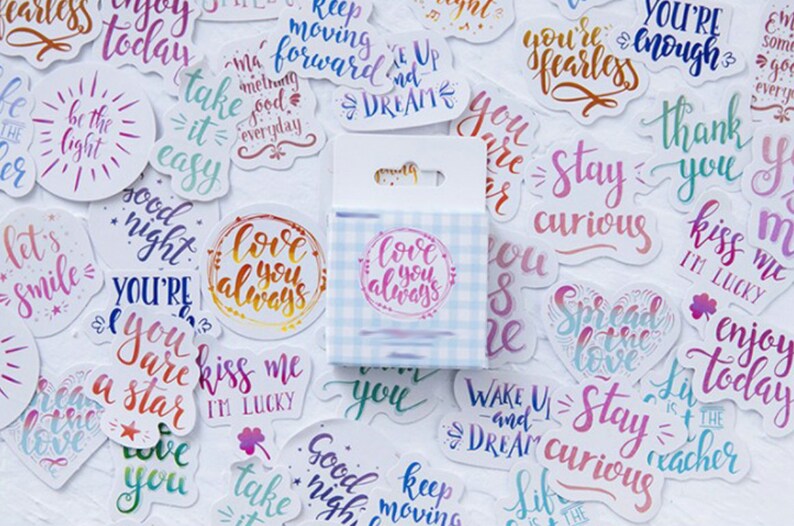 fearless
enjoy
today
SMILE
keep
moving
forward
WAKE UP
and
DREAM
night
you're
fearless
YOU'RE
enough
something
good
everyday
be the
light
take
it
easy
something
good
everyday
you
are
a star
thank
you
stay
curious
kiss me
I'M LUCKY
let's
smile
Good
night
love
you
always
love
you
always
YOU'RE
you
are
a star
kiss me
I'M LUCKY
Spread
the
love
enjoy
today
the
love
love
you
you
WAKE UP
and
DREAM
stay
curious
Life
is
THE
teacher
take
it
Good
night
keep
moving
Life
is the